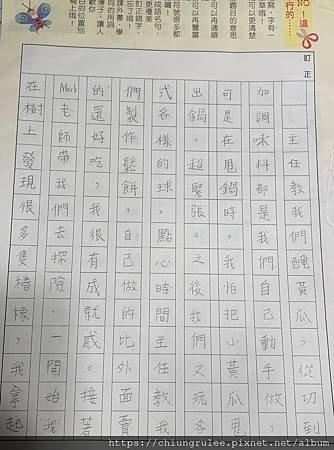 訂正
NO！這
行的……
寫，字有
可以更清楚
題目的意思
可以再通順
可以再豐富
符號很多都
成語名句，
更優美
訂正錯字
忘了喔！
課外書，學
同的用詞
的位置別
主任教我們醃黃瓜，從切到
加調味料都是我們自己動手做，
可是在甩鍋時，我怕把小黃瓜甩
出鍋，超緊張。之後我們又玩各
式各樣的球，點心時間主任教我
們製作鬆餅，自己做的比外面賣
的還好吃，我很有成就感。接著
Mark老師帶我們去探險，一開始我
在樹上發現很多隻椿橡，我拿起
https://chiungrulee.pixnet.net/album